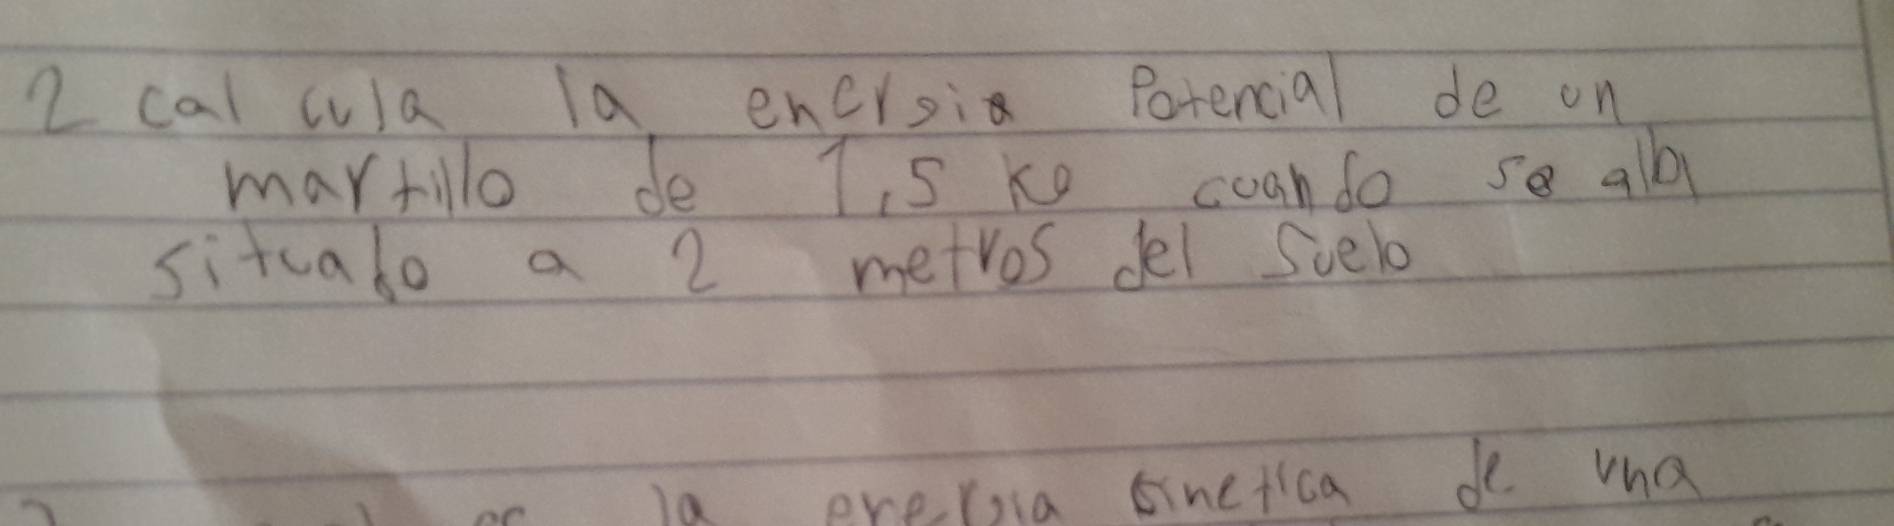 2 calcula la energia Potencial de un
martillo de 1,5 kg cuando se alla
situado a 2 metros del suelo
la energia sinetica de una